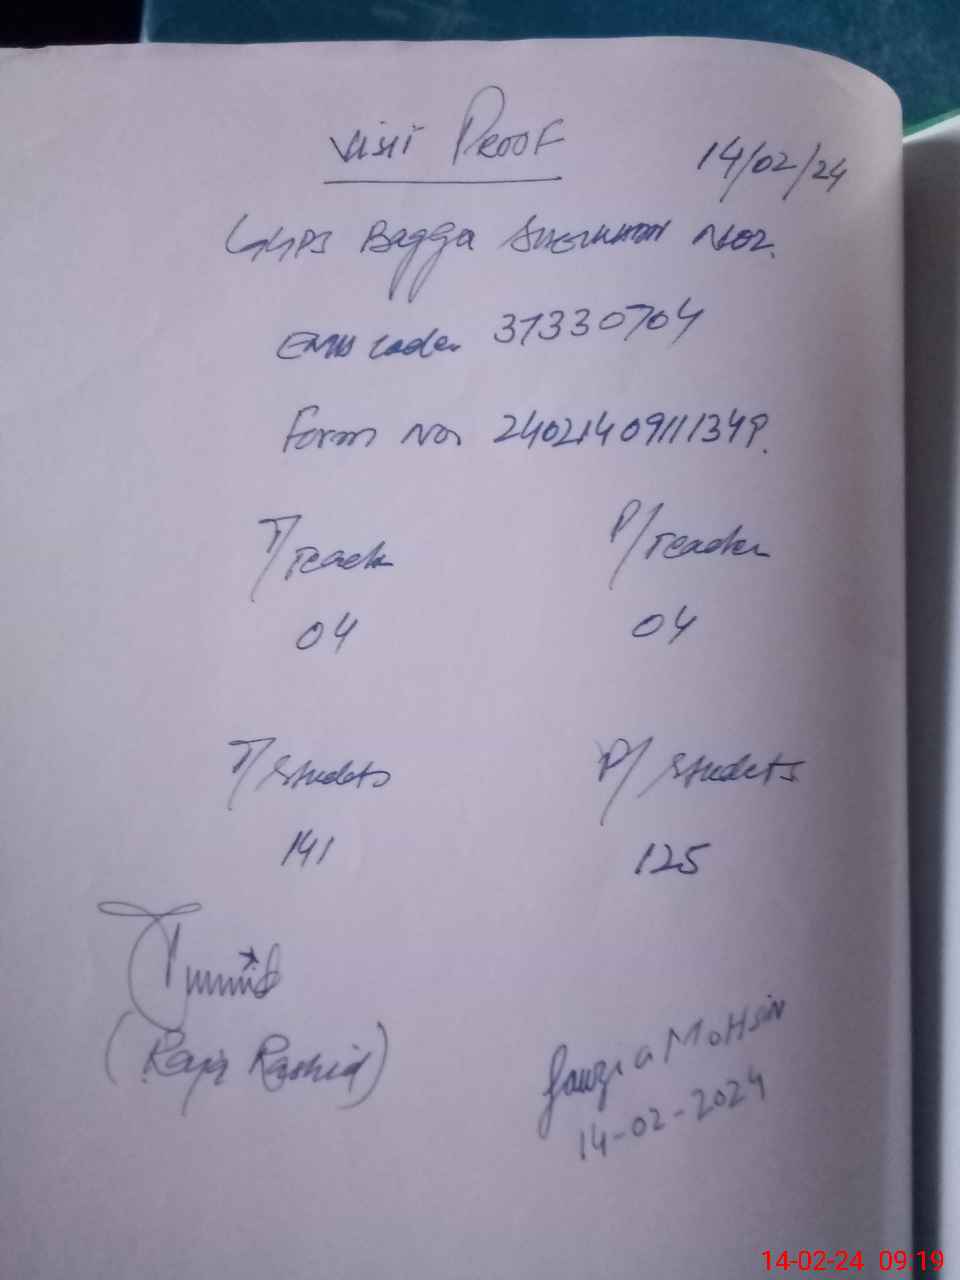 Visit Proof
14/02/24
GGPS Bagga No2.
EMIS code. 37330704
Form No. 24021409111349.
T/Teach P/Teacher
04 04
T/studets P/studets
141 125
(Raja Rashid)
Fauzia MoHsin
14-02-2024
14-02-24 09:19